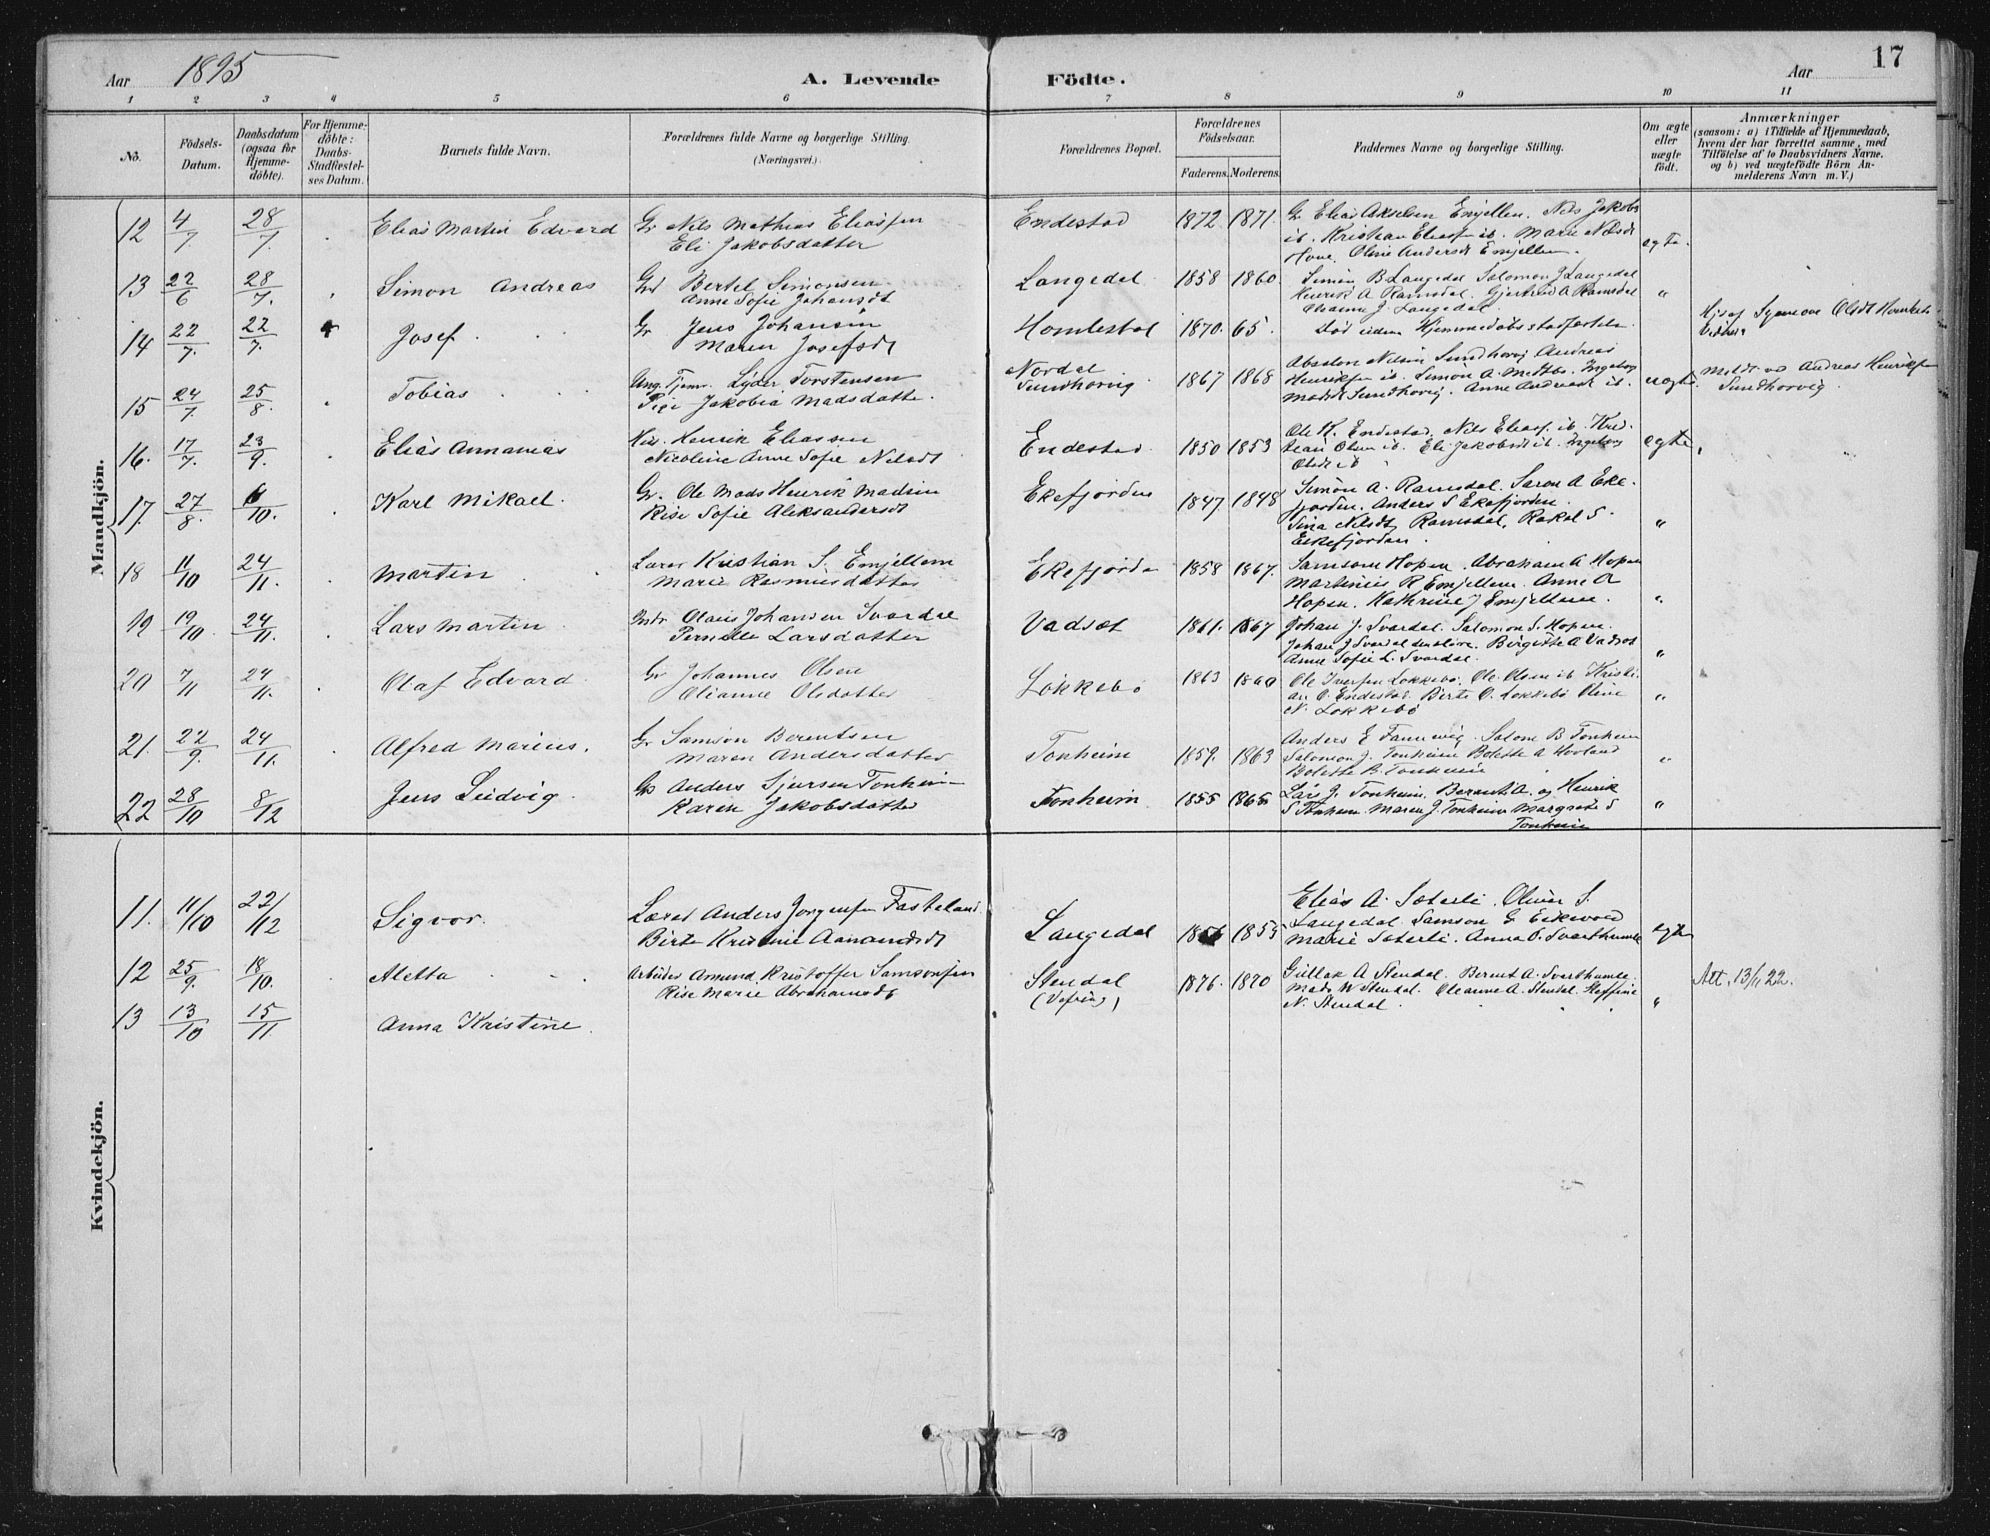 17
Aar 1895 A. Levende Födte. Aar
1 2 3 4 5 6 7 8 9 10 11
No.
Födsels-Datum.
Daabsdatum (ogsaa for Hjemme-döbte).
For Hjemme-döbte: Daabs-Stadfæstel-ses Datum.
Barnets fulde Navn.
Forældrenes fulde Navne og borgerlige Stilling. (Næringsvei.)
Forældrenes Bopæl.
Forældrenes Födselsaar.
Faderens. Moderens.
Faddernes Navne og borgerlige Stilling.
Om ægte eller uægte födt.
Anmærkninger
(saasom: a) i Tilfælde af Hjemmedaab,
hvem der har forrettet samme, med
Tilföielse af to Daabsvidners Navne,
og b) ved uægtefödte Börn An-
melderens Navn m. V.)
Mandkjön.
12 4/7 28/7. Elias Martin Edvard Gr Nils Mathias Eliassen
Eli Jakobsdatter
Endestad 1872 1871. Gr Elias Akselsen Emjellen. Nils Jakobs
ib. Kristian Eliass ib. Marie Nilsdt
Hove. Oline Andersdt Emjellen. egte.
13 22/6 28/7. Simon Andreas Gr Bertel Simonsen
Anne Sofie Johansdt
Langedal 1858 1860. Simon B Langedal Salomon J Langedal
Henrik A Ramsdal. Gjertrud A Ramsdal
J. Langedal. "
14 22/7. 22/7. Josef. Gr Jens Johansen
Maren Josefsdt
Homlestol 1870. 65. Död uden Hjemmedaabsstadfæstelse.
15 24/7. 25/8. Tobias Ung. Tjener Lyder Torstensen
Pige Jakobea Madsdatter.
Nordal
Sundhovig 1867 1868 Absalon Nilsen Sundhovig Andreas
Henriksen ib. Simon A. Ingeborg
Madsdt Sundhovig. Anne Andreasdt ib. uegte. Meldt ved Andreas Henriksen
Sundhovig.
16. 17/7. 23/9. Elias Annanias Henrik Eliassen
Nicoline Anne Sofie Nilsdt
Endestad 1850 1853 Ole K. Endestad. Nils Eliass. ib.
Olsen ib. Eli Jakobsdt ib. Ingeborg
Olsdt ib egte.
17. 27/8. 6/10. Karl Mikael. Gr. Ole Mads Henrik Madsen
Rise Sofie Aleksandersdt
Ekefjorden 1847 1848 Simon A. Ramsdal. Søren A Eke-
fjorden. Anders S Ekefjorden.
Sina Nilsdt Ramsdal, Rakel S.
Eikefjorden. "
18 11/10 24/11. Martin Lærer Kristian S. Emjellem
Marie Rasmusdatter
Ekefjorden 1858 1867. Samson Hopen. Abraham A Hopen
Martinius R Emjellem. Anne A
Hopen. Kathrine J Emjellem. "
19 19/10. 24/11. Lars Martin Olaus Johansen Svardal
Pernelle Larsdatter
Vadset 1861. 1867 Johan J. Svardal. Salomon S. Hopen.
Johan J Svardal Birgitte A Vadset
Anne Sofie L. Svardal. "
20 7/11 24/11. Olaf Edvard Gr Johannes Olsen
Olianne Olsdatter
Løkkebø 1863 1860 Ole Iversen Løkkebø. Ole Olsen ib Kristi-
an O. Endestad. Birte O. Løkkebø Oline
N. Løkkebø "
21. 22/9. 24/11. Alfred Marius. Gr Samson Berentsen
Maren Andersdatter
Tonheim 1859. 1863 Anders E Salom B Tonheim
Salomon J. Tonheim Bolette A Hovland
Bolette B. Tonheim "
22 28/10 8/12 Jens Ludvig. Gr Anders Sjursen Tonheim
Karen Jakobsdatter
Tonheim. 1855 1865 Lars J. Tonheim. Berent A. og Henrik
S Tonheim Maren J. Tonheim Margrete S
Tonheim "
Kvindekjön.
11. 11/10 22/12 Sigvor. Lærer Anders Jørgensen Fasteland.
Birte Kristine Aamandsdt
Langedal 1855 Elias A. Seterli. Oliver S.
Langedal. Samson G Eikevold
Marie Seterli. Anna O. Svarthumle egte
12 25/9. 18/10. Aletta Arbeider Amund Kristoffer Samsonsen
Rise Marie Abrahamsdt
Stendal
(Vefring) 1876. 1870 Gullak A Stendal. Bernt A. Svarthumle.
Mads W Stendal. Oleanne A. Stendal. Steffine
N. Stendal. " Att. 13/1 22.
13 13/10 15/11. Anna Kristine.